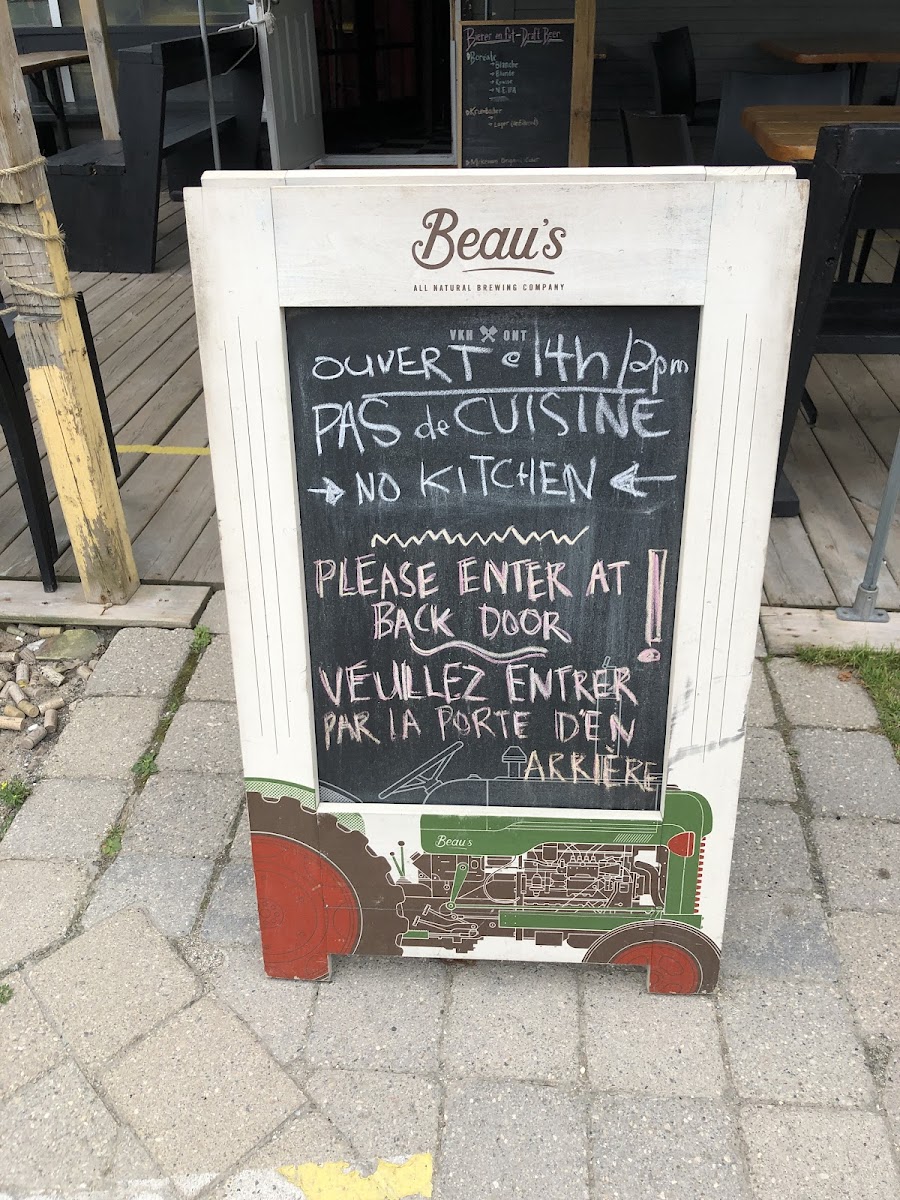 Bières en fût - Draft Beer
Boréale
Blanche
Blonde
Rousse
N.E.IPA
Krombacher
Lager
Beau's
ALL NATURAL BREWING COMPANY
VKH ONT
OUVERT @ 14h/2pm
PAS de CUISINE
→ NO KITCHEN ←
PLEASE ENTER AT
BACK DOOR !
VEUILLEZ ENTRER
PAR LA PORTE D'EN
ARRIÈRE
Beau's